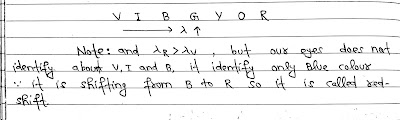 V I B G Y O R
→ λ ↑
Note: and λR > λU , but our eyes does not
identify about V, I and B, it identify only Blue colour
∵ it is shifting from B to R so it is called red-
shift.